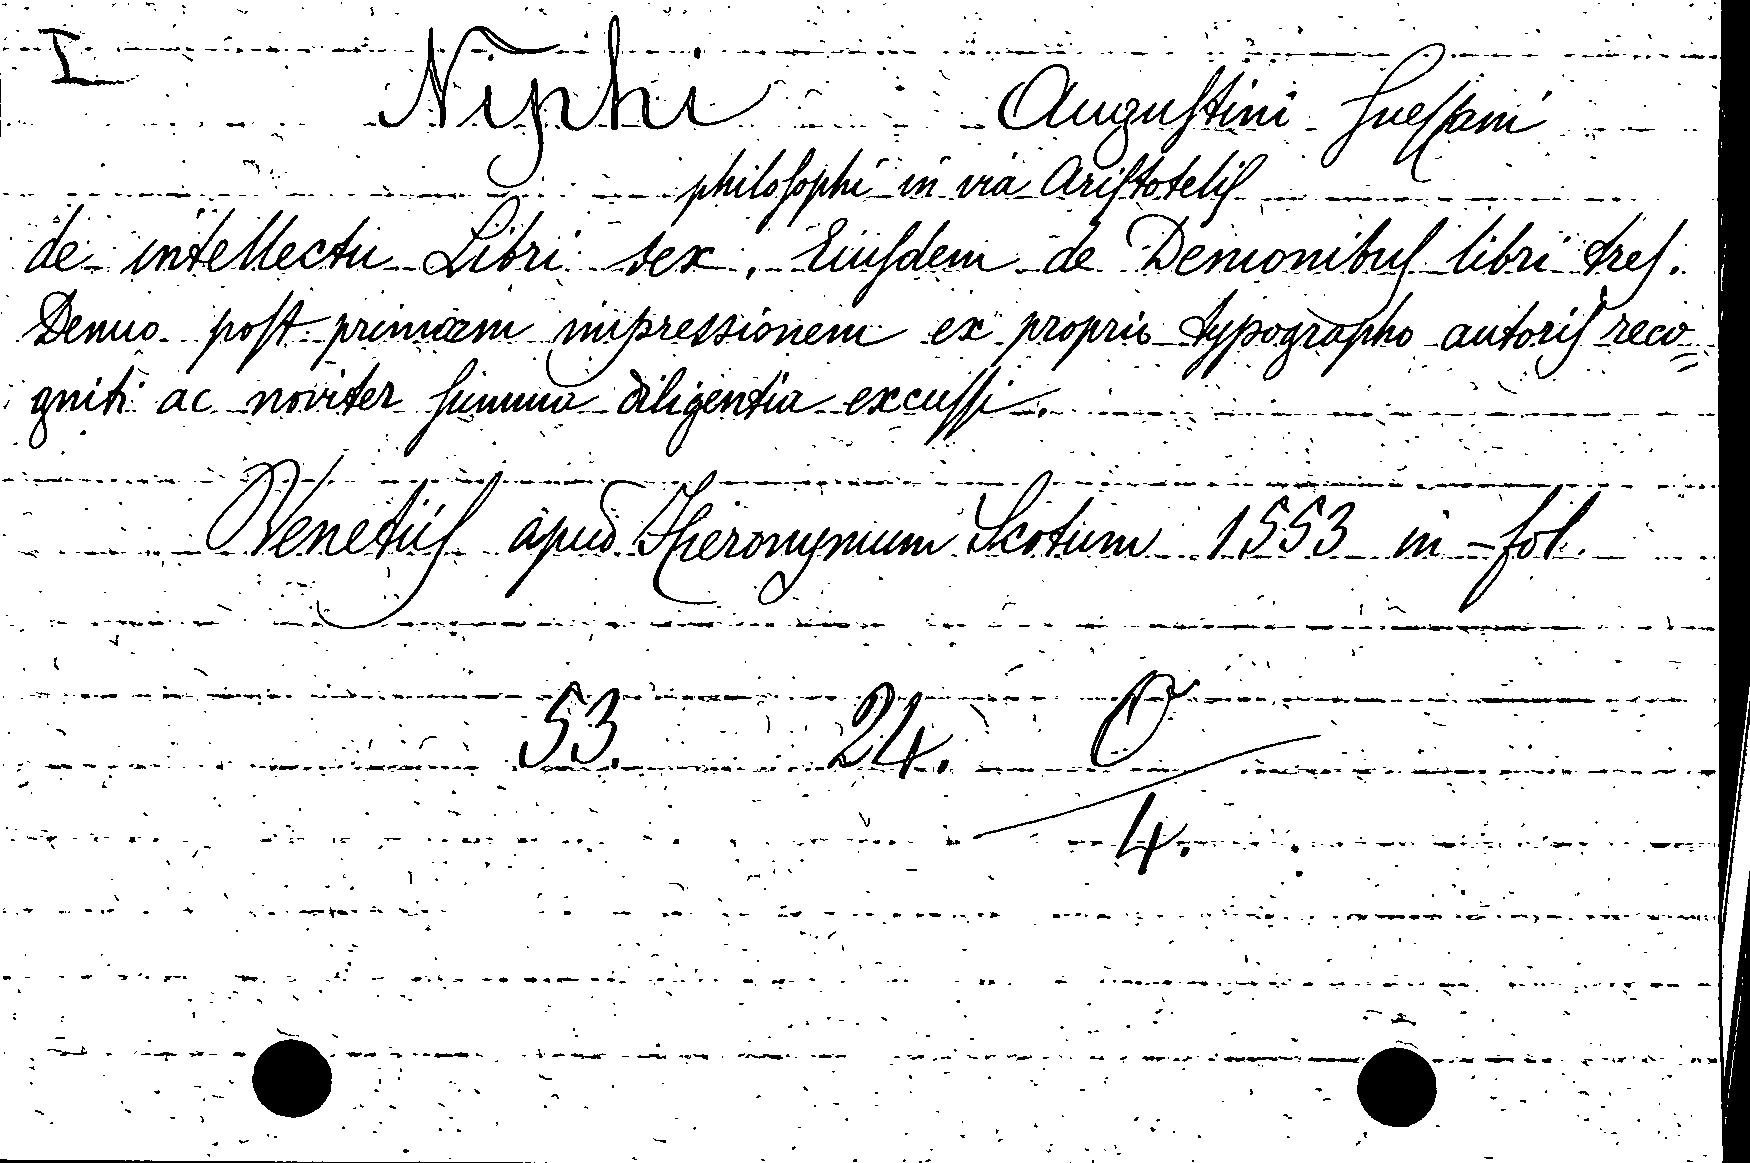 I Niphi Augustini Suessani
philosophi in via Aristotelis
de intellectu Libri sex. Eiusdem de Demonibus libri tres.
Denuo post primam impressionem ex proprio typographo autoris reco=
gniti ac noviter summa diligentia excussi.
Venetiis apud Hieronymum Scotum 1553 in fol.
53. 24. O
4.